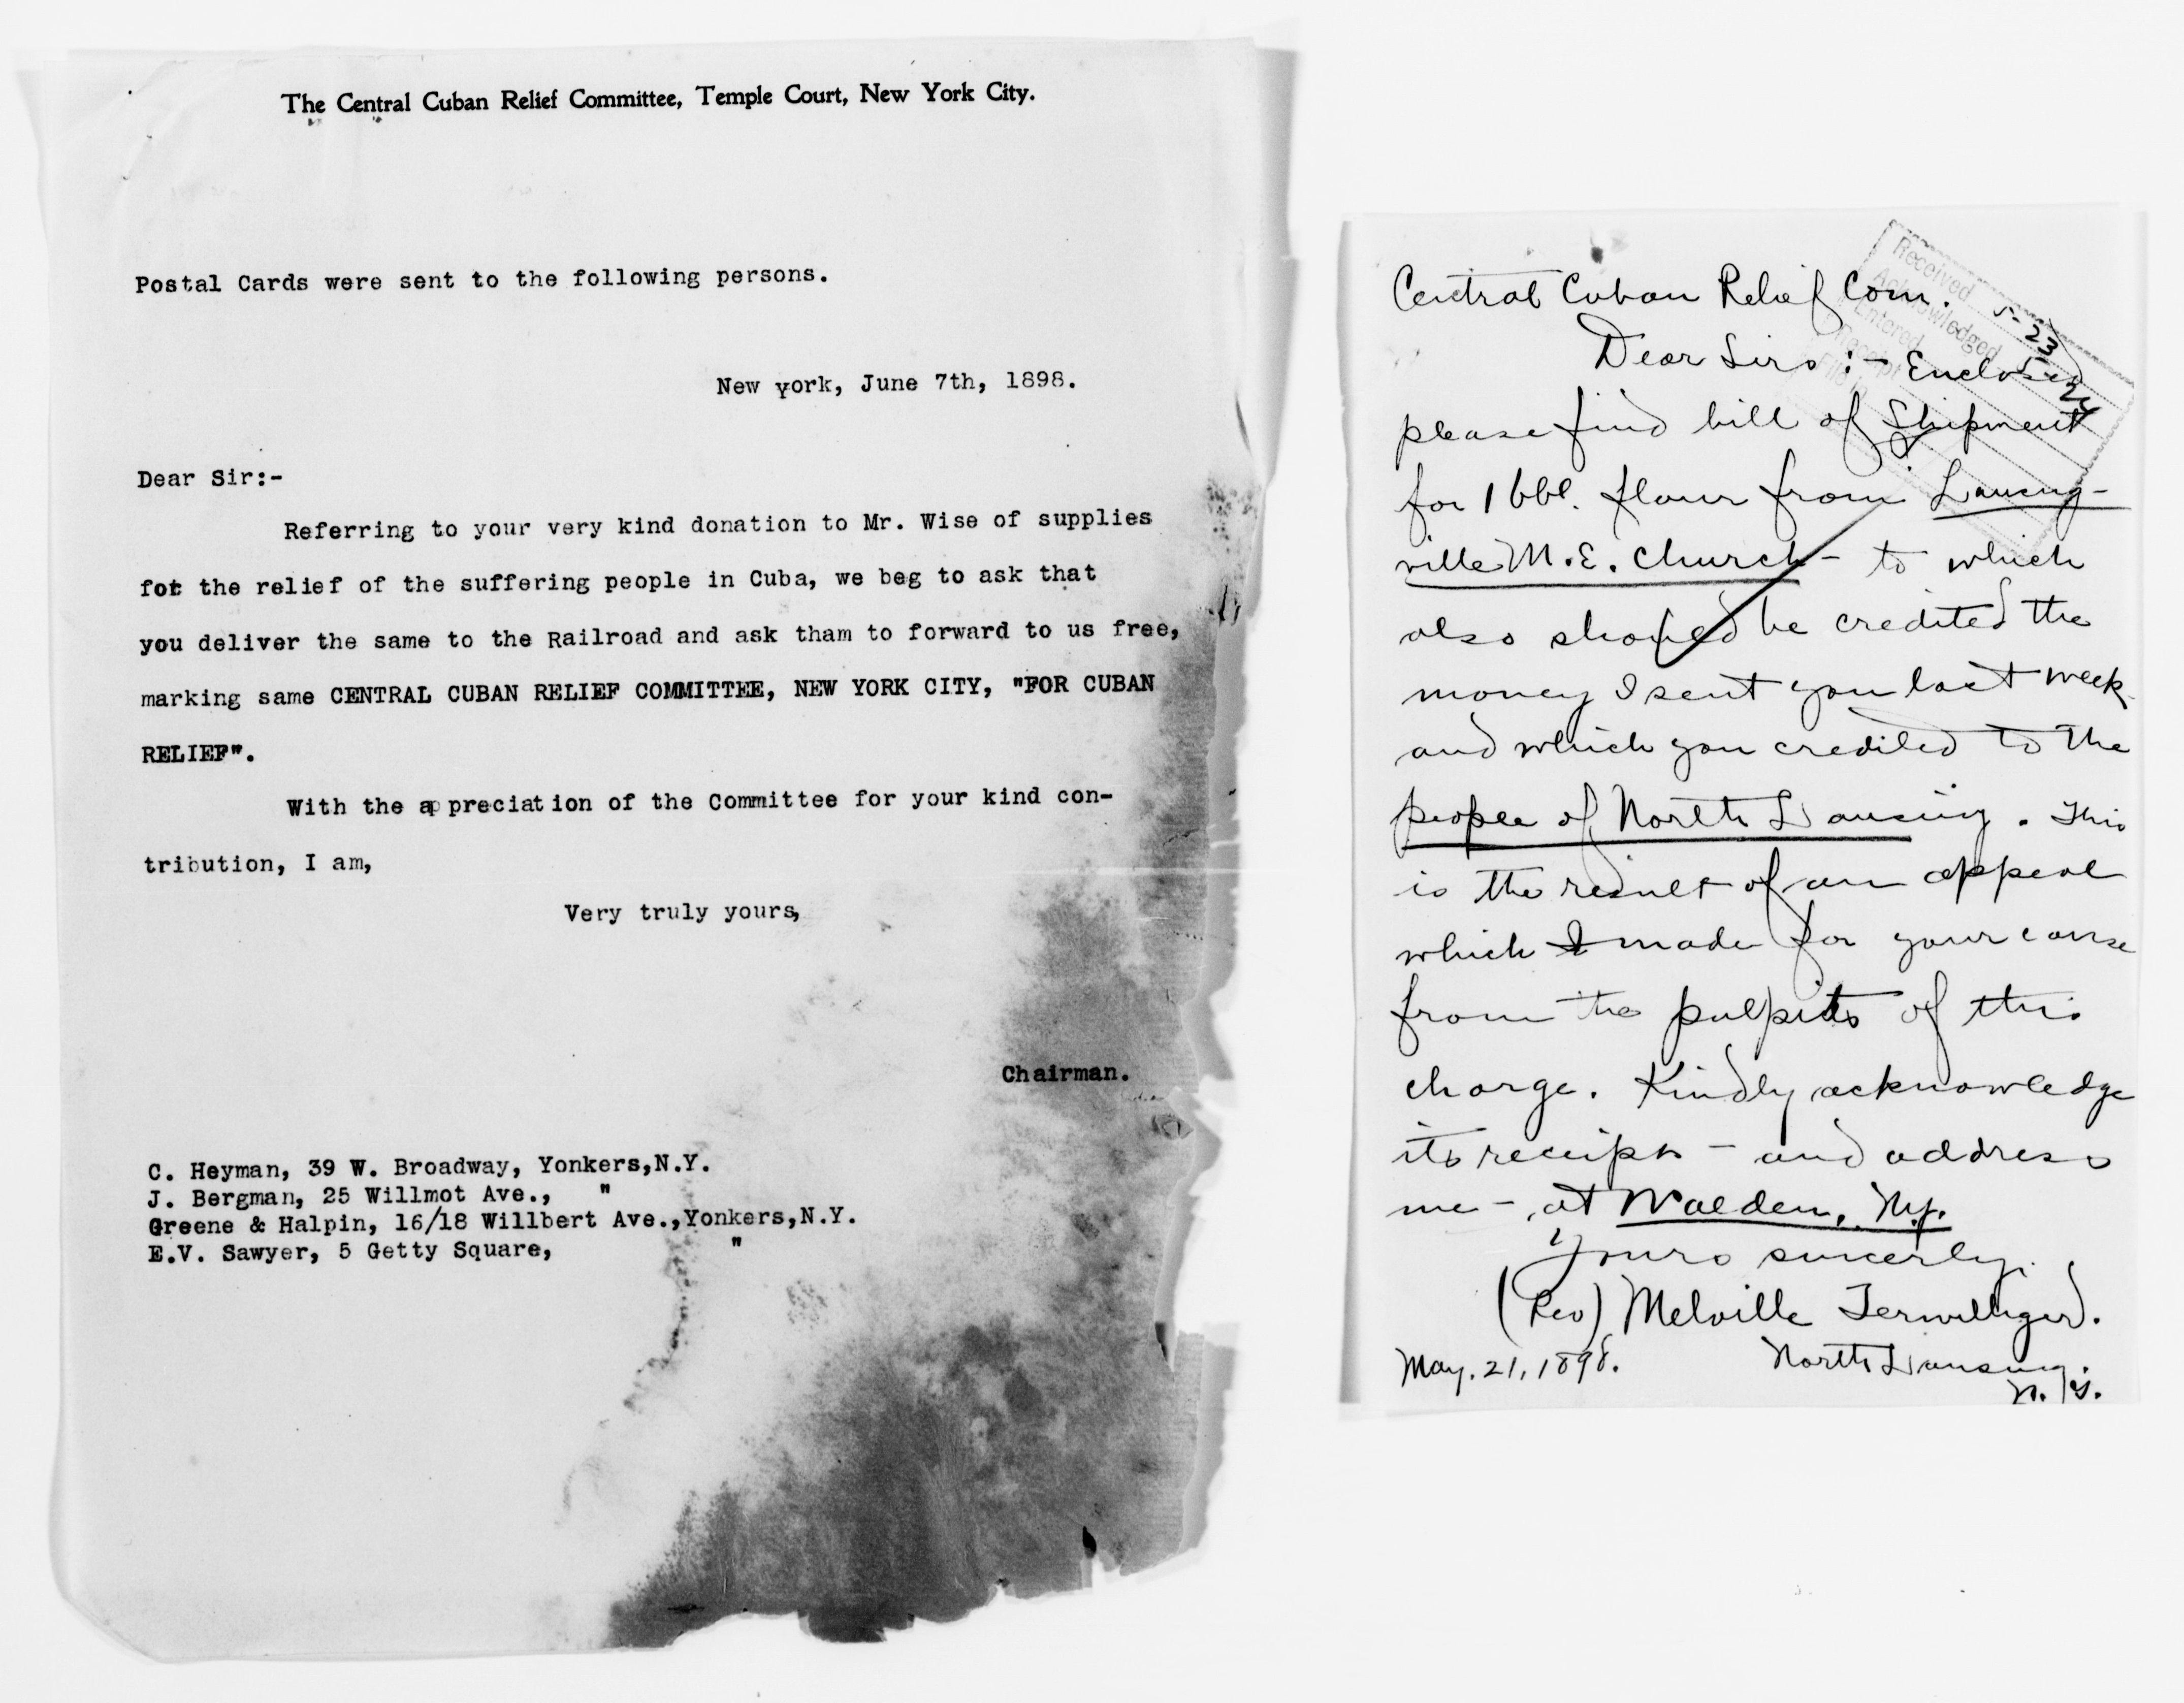 The Central Cuban Relief Committee, Temple Court, New York City.
Postal Cards were sent to the following persons.
New york, June 7th, 1898.
Dear Sir:-
Referring to your very kind donation to Mr. Wise of supplies
fot the relief of the suffering people in Cuba, we beg to ask that
you deliver the same to the Railroad and ask tham to forward to us free,
marking same CENTRAL CUBAN RELIEF COMMITTEE, NEW YORK CITY, "FOR CUBAN
RELIEF".
With the appreciation of the Committee for your kind con-
tribution, I am,
Very truly yours,
Chairman.
C. Heyman, 39 W. Broadway, Yonkers,N.Y.
J. Bergman, 25 Willmot Ave., "
Greene & Halpin, 16/18 Willbert Ave.,Yonkers,N.Y.
E.V. Sawyer, 5 Getty Square, "
Received 5-23
Acknowledged 5-24
Entered
Receipt
File in
Central Cuban Relief Com.
Dear Sirs:- Enclosed
please find bill of Shipment
for 1 bbl. flour from Lansing-
ville M.E. Church - to which
also should be credited the
money I sent you last week
and which you credited to the
people of North Lansing. This
is the result of an appeal
which I made for your cause
from the pulpits of this
charge. Kindly acknowledge
its receipt - and address
me - at Walden, N.Y.
Yours sincerely,
(Rev) Melville Terwilliger.
May. 21, 1898. North Lansing.
N. Y.